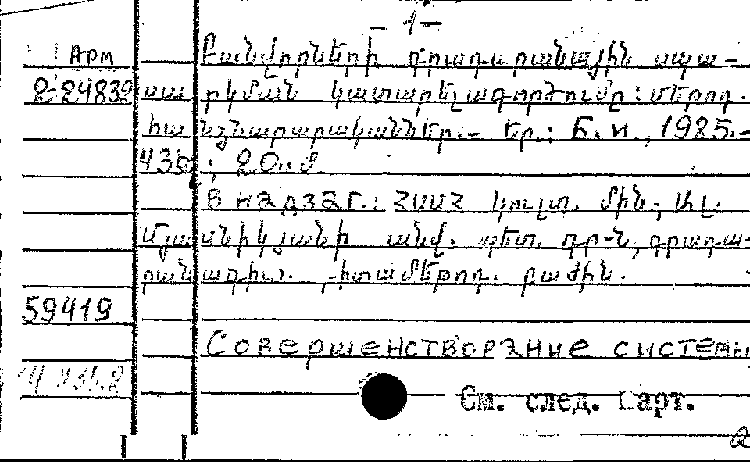 - 1 -
Арм Բանվորների գրադարանային սպա-
2-24839 սարկման կատարելագործումը: Մեթոդ.
հանձնարարականներ. - Եր.: Б. и., 1985.-
43с; 20см
В надзаг.: ՀՍՍՀ կուլտ. մին., Ալ.
Մյասնիկյանի անվ. պետ. գր-ն, գրադա-
րանագիտ. մեթոդ. բաժին.
59419
Совершенствование системы
См. след. карт.
2